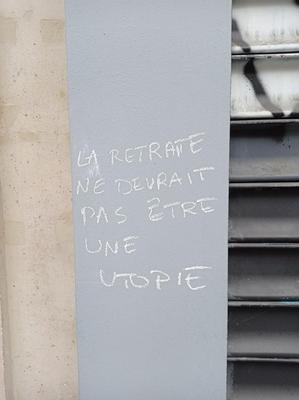 LA RETRAITE
NE DEVRAIT
PAS ÊTRE
UNE
UTOPIE